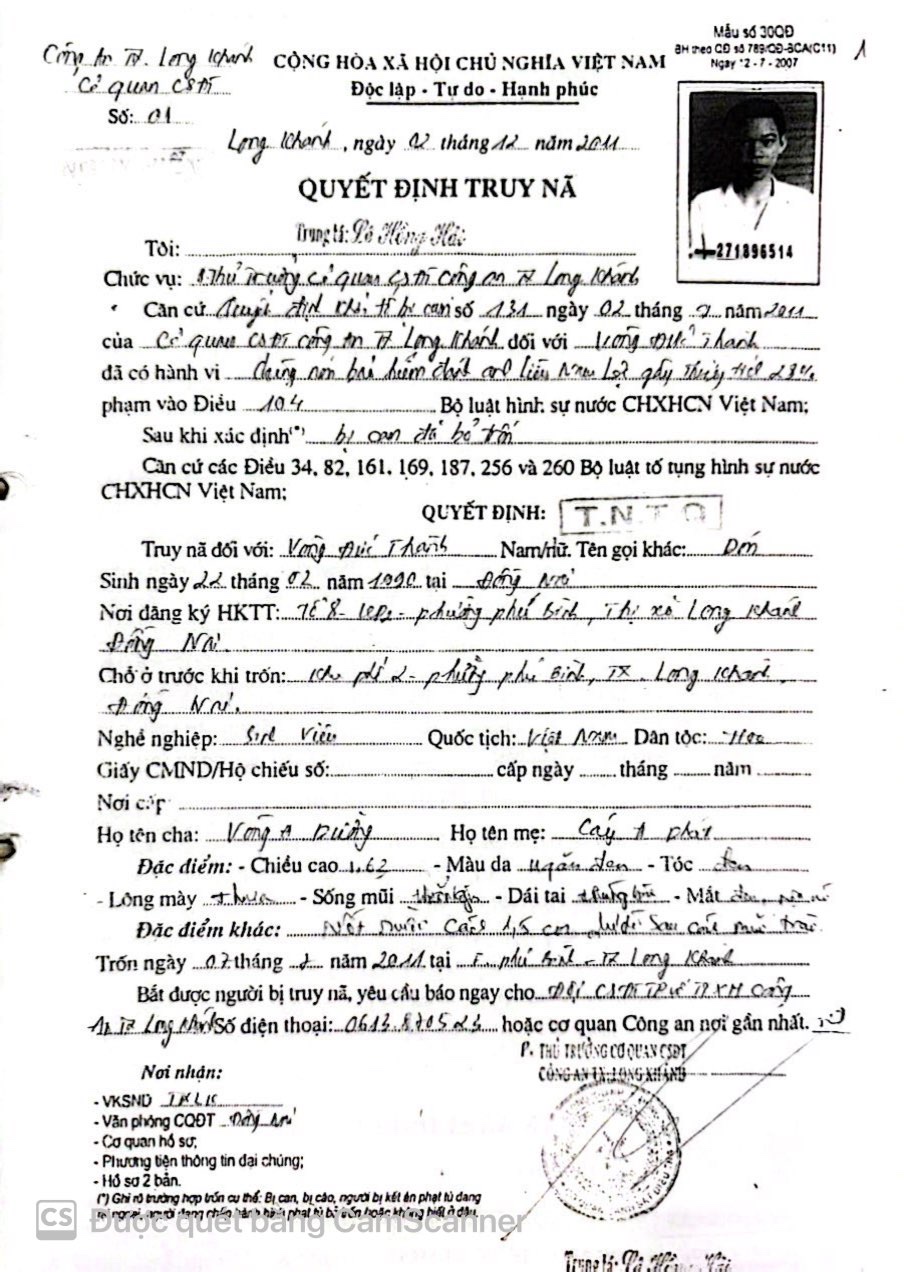 Mẫu số 30QĐ
BH theo QĐ số 789/QĐ-BCA(C11)
Ngày 12 - 7 - 2007
1
Công An TX. Long Khánh
Cơ quan CSĐT
Số: 01
CỘNG HÒA XÃ HỘI CHỦ NGHĨA VIỆT NAM
Độc lập - Tự do - Hạnh phúc
Long Khánh, ngày 02 tháng 12 năm 2011
QUYẾT ĐỊNH TRUY NÃ
271896514
Tôi: Trung tá: Lê Hồng Hải
Chức vụ: P.Thủ trưởng Cơ quan CSĐT Công an TX Long Khánh
Căn cứ Quyết định khởi tố bị can số 131 ngày 02 tháng năm 2011
của Cơ quan CSĐT Công An TX Long Khánh đối với Vòng Đức Thanh
đã có hành vi dùng nón bảo hiểm đánh anh gây thương tích 28%
phạm vào Điều 104 Bộ luật hình sự nước CHXHCN Việt Nam;
Sau khi xác định(*) bị can đã bỏ trốn
Căn cứ các Điều 34, 82, 161, 169, 187, 256 và 260 Bộ luật tố tụng hình sự nước
CHXHCN Việt Nam;
QUYẾT ĐỊNH: T.N.T.Q
Truy nã đối với: Vòng Đức Thanh Nam/nữ. Tên gọi khác:
Sinh ngày 22 tháng 02 năm 1990 tại Đồng Nai
Nơi đăng ký HKTT: Tổ 8 - KP2 - phường phú Bình, Thị xã Long Khánh
Đồng Nai.
Chỗ ở trước khi trốn: Khu phố 2 - phường phú Bình, TX. Long Khánh.
Đồng Nai.
Nghề nghiệp: Sinh Viên Quốc tịch: Việt Nam Dân tộc: Hoa
Giấy CMND/Hộ chiếu số: cấp ngày tháng năm
Nơi cấp
Họ tên cha: Vòng A Họ tên mẹ:
Đặc điểm: - Chiều cao 1.62 - Màu da ngăm đen - Tóc đen
- Lông mày thưa - Sống mũi - Dái tai - Mắt
Đặc điểm khác: Nốt ruồi Cách 1,5 cm dưới sau cánh mũi trái
Trốn ngày 07 tháng năm 2011 tại P. phú Bình - TX Long Khánh
Bắt được người bị truy nã, yêu cầu báo ngay cho Đội CSĐTTP về TTXH Công
An TX Long Khánh Số điện thoại: 0613.870523 hoặc cơ quan Công an nơi gần nhất.
P. THỦ TRƯỞNG CƠ QUAN CSĐT
CÔNG AN TX. LONG KHÁNH
Nơi nhận:
- VKSND TXLK
- Văn phòng CQĐT Đồng Nai
- Cơ quan hồ sơ;
- Phương tiện thông tin đại chúng;
- Hồ sơ 2 bản.
(*) Ghi rõ trường hợp trốn cụ thể: Bị can, bị cáo, người bị kết án phạt tù đang
tại ngoại, người đang chấp hành hình phạt tù bỏ trốn hoặc không biết ở đâu.
CS Được quét bằng CamScanner
Trung tá: Lê Hồng Hải